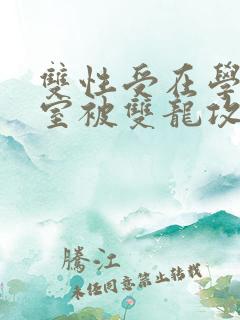 雙性受在學
室被雙龍攻
騰江
未經同意禁止轉載